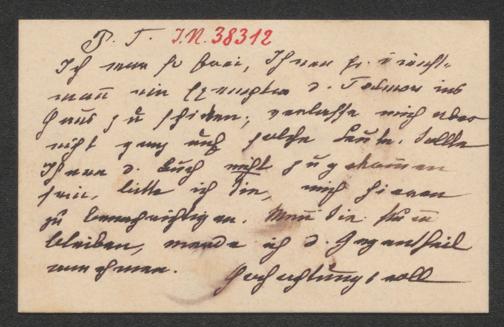 P. T. I.N. 38312
Ich war so frei, Ihnen
mann ein Exemplar d. ins
Haus zu schicken; verlasse mich aber
nicht ganz auf solche Leute. Sollte
Ihnen d. Buch nicht zugekommen
sein, bitte ich Sie, mich hievon
zu benachrichtigen. Wenn Sie
bleiben, werde ich d. Gegentheil
annehmen. Hochachtungsvoll